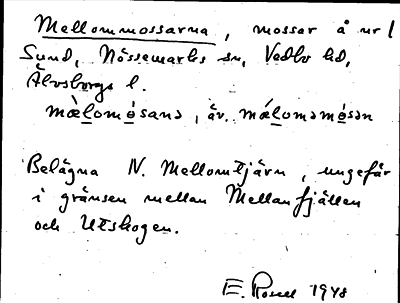 Mellommossarna, mossar å nr 1
Sund, Nössemarks sn, Vedbo hd,
Älvsborgs l.
mæ̀lomósanə, äv. mǽloməmósən
Belägna N. Mellomtjärn, ungefär
i gränsen mellan Mellanfjällen
och Utskogen.
E. Rosell 1948